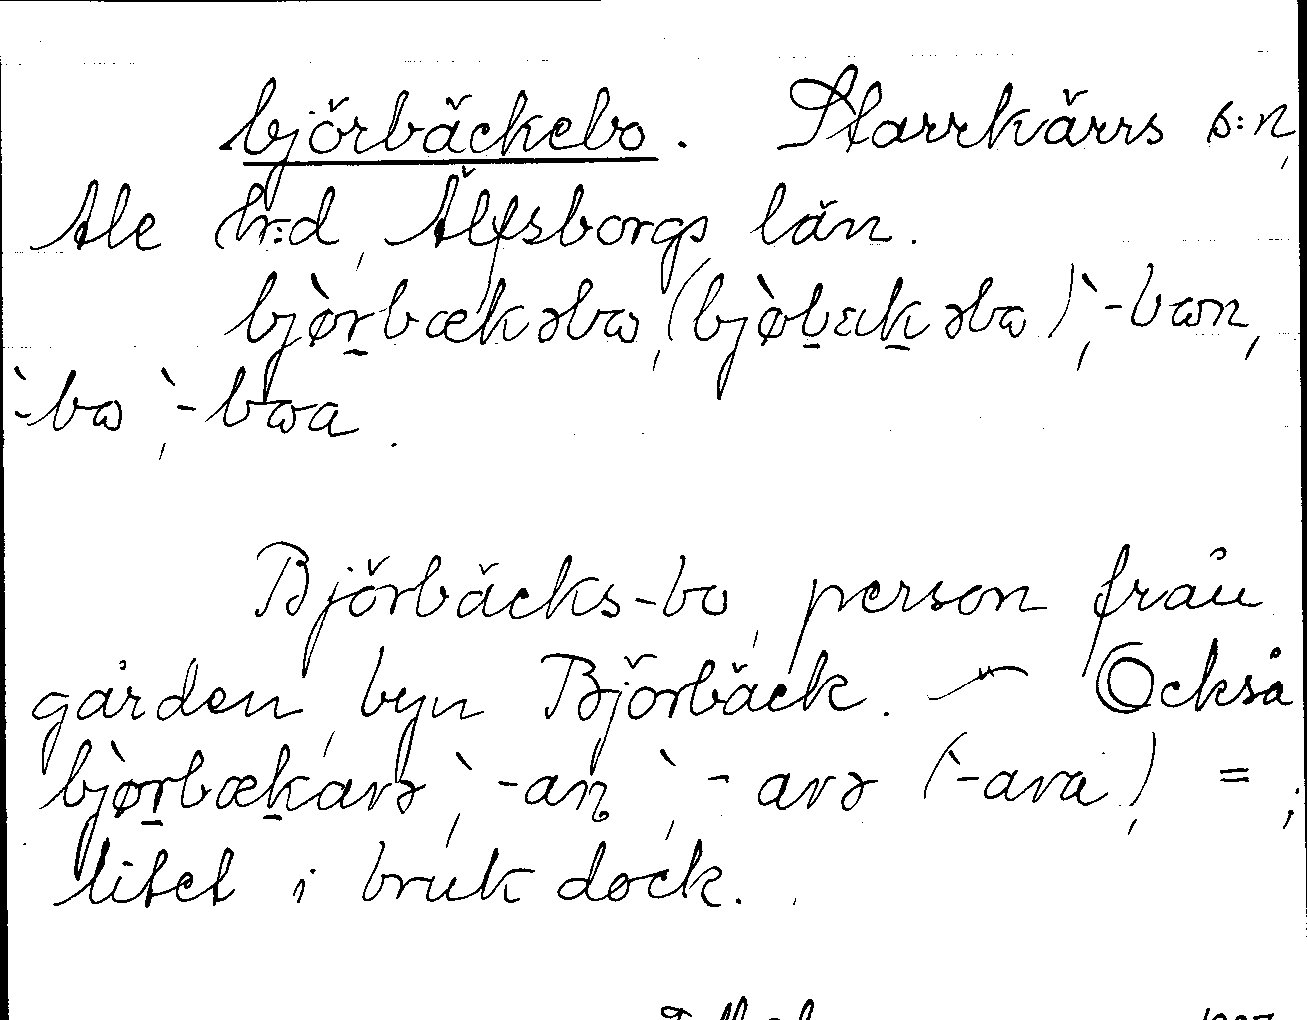 björbäckebo. Starrkärrs s:n,
Ale h:d, Älfsborgs län.
bjø̀rbækəbɷ, (bjø̀bækəbɷ), `-bɷn,
`-bɷ, `-bɷa.
Björbäcks-bo, person från
gården, byn Björbäck. — Också
bjø̀rbækarə, `-aŋ, `-arə (`-ara), = ;
litet i bruk dock.